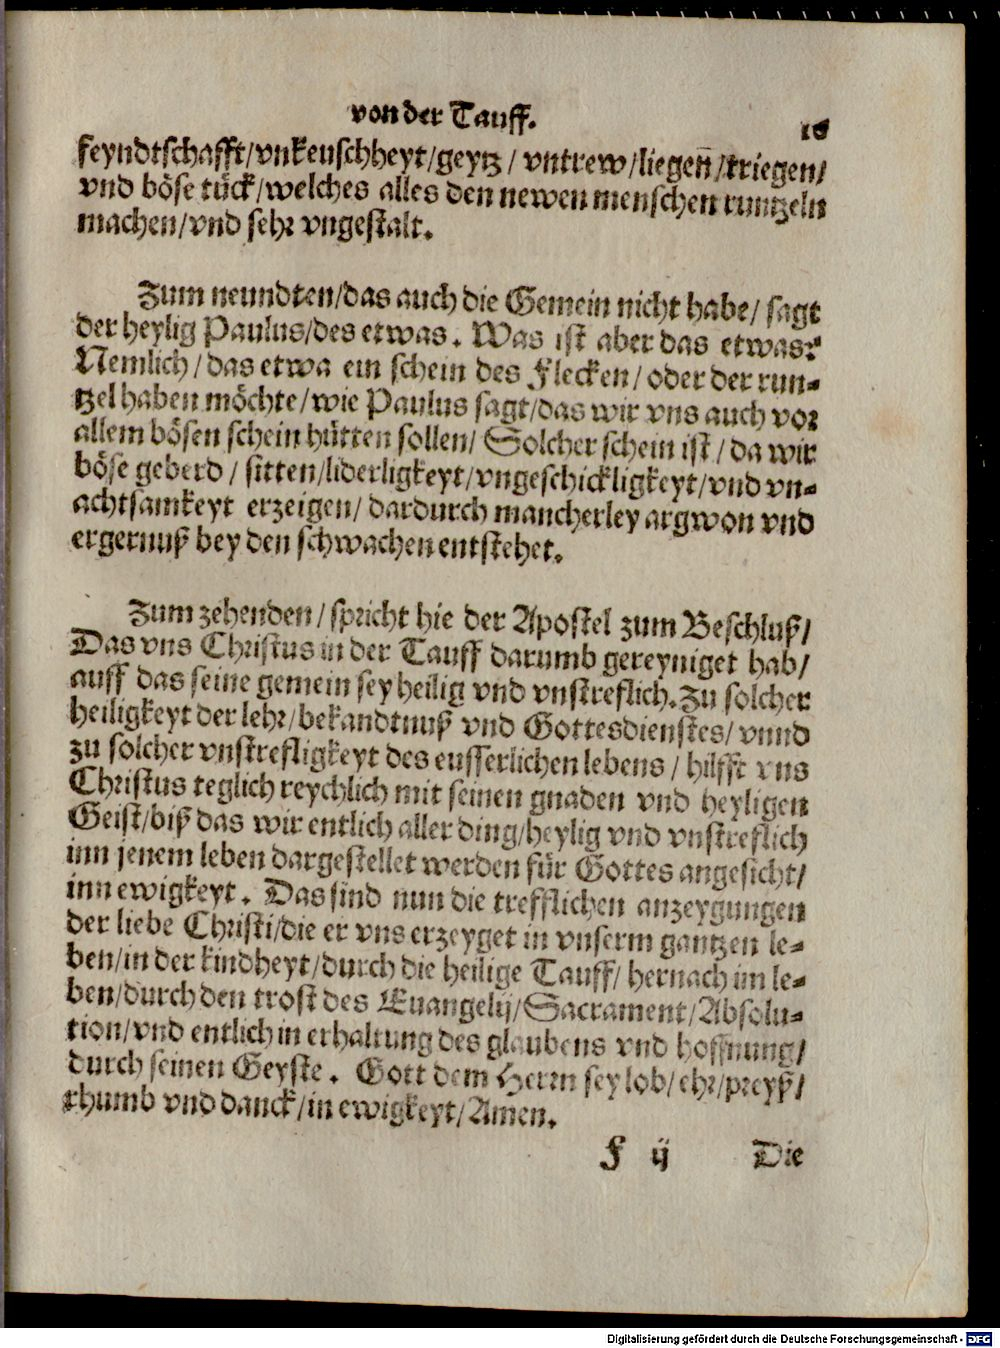 von der Tauff.
16
feyndtschafft/vnkeuschheyt/geytz/ vntrew/liegen̄/triegen/
vnd böse tück/welches alles den newen menschen runtzeln
machen/vnd sehr vngestalt.
Zum neundten/das auch die Gemein nicht habe/ sagt
der heylig Paulus/des etwas. Was ist aber das etwas?
Nemlich/das etwa ein schein des Flecken/oder der run-
tzel haben möchte/wie Paulus sagt/das wir vns auch vor
allem bösen schein hütten sollen/ Solcher schein ist/da wir
böse geberd/ sitten/liderligkeyt/vngeschickligkeyt/vnd vn-
achtsamkeyt erzeigen/ dardurch mancherley argwon vnd
ergernuß bey den schwachen entstehet.
Zum zehenden/spricht hie der Apostel zum Beschluß/
Das vns Christus in der Tauff darumb gereyniget hab/
auff das seine gemein sey heilig vnd vnstreflich. Zu solcher
heiligkeyt der lehr/bekandtnuß vnd Gottesdienstes/ vnnd
zu solcher vnstrefligkeyt des eusserlichen lebens/ hilfft vns
Christus teglich reychlich mit seinen gnaden vnd heyligen
Geist/biß das wir entlich aller ding/heylig vnd vnstreflich
inn jenem leben dargestellet werden für Gottes angesicht/
inn ewigkeyt. Das sind nun die trefflichen anzeygungen
der liebe Christi/die er vns erzeyget in vnserm gantzen le-
ben/in der kindheyt/durch die heilige Tauff/ hernach im le-
ben/durch den trost des Euangelij/Sacrament/Absolu-
tion/vnd entlich in erhaltung des glaubens vnd hoffnung/
durch seinen Geyste. Gott dem Herrn sey lob/ehr/preyß/
rhumb vnd danck/in ewigkeyt/Amen.
F ij Die
Digitalisierung gefördert durch die Deutsche Forschungsgemeinschaft - DFG